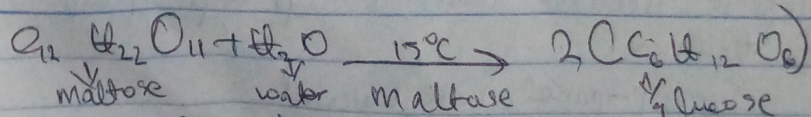 C12 H22 O11 + H2O 15°C → 2(C6 H12 O6)
maltose water maltase glucose